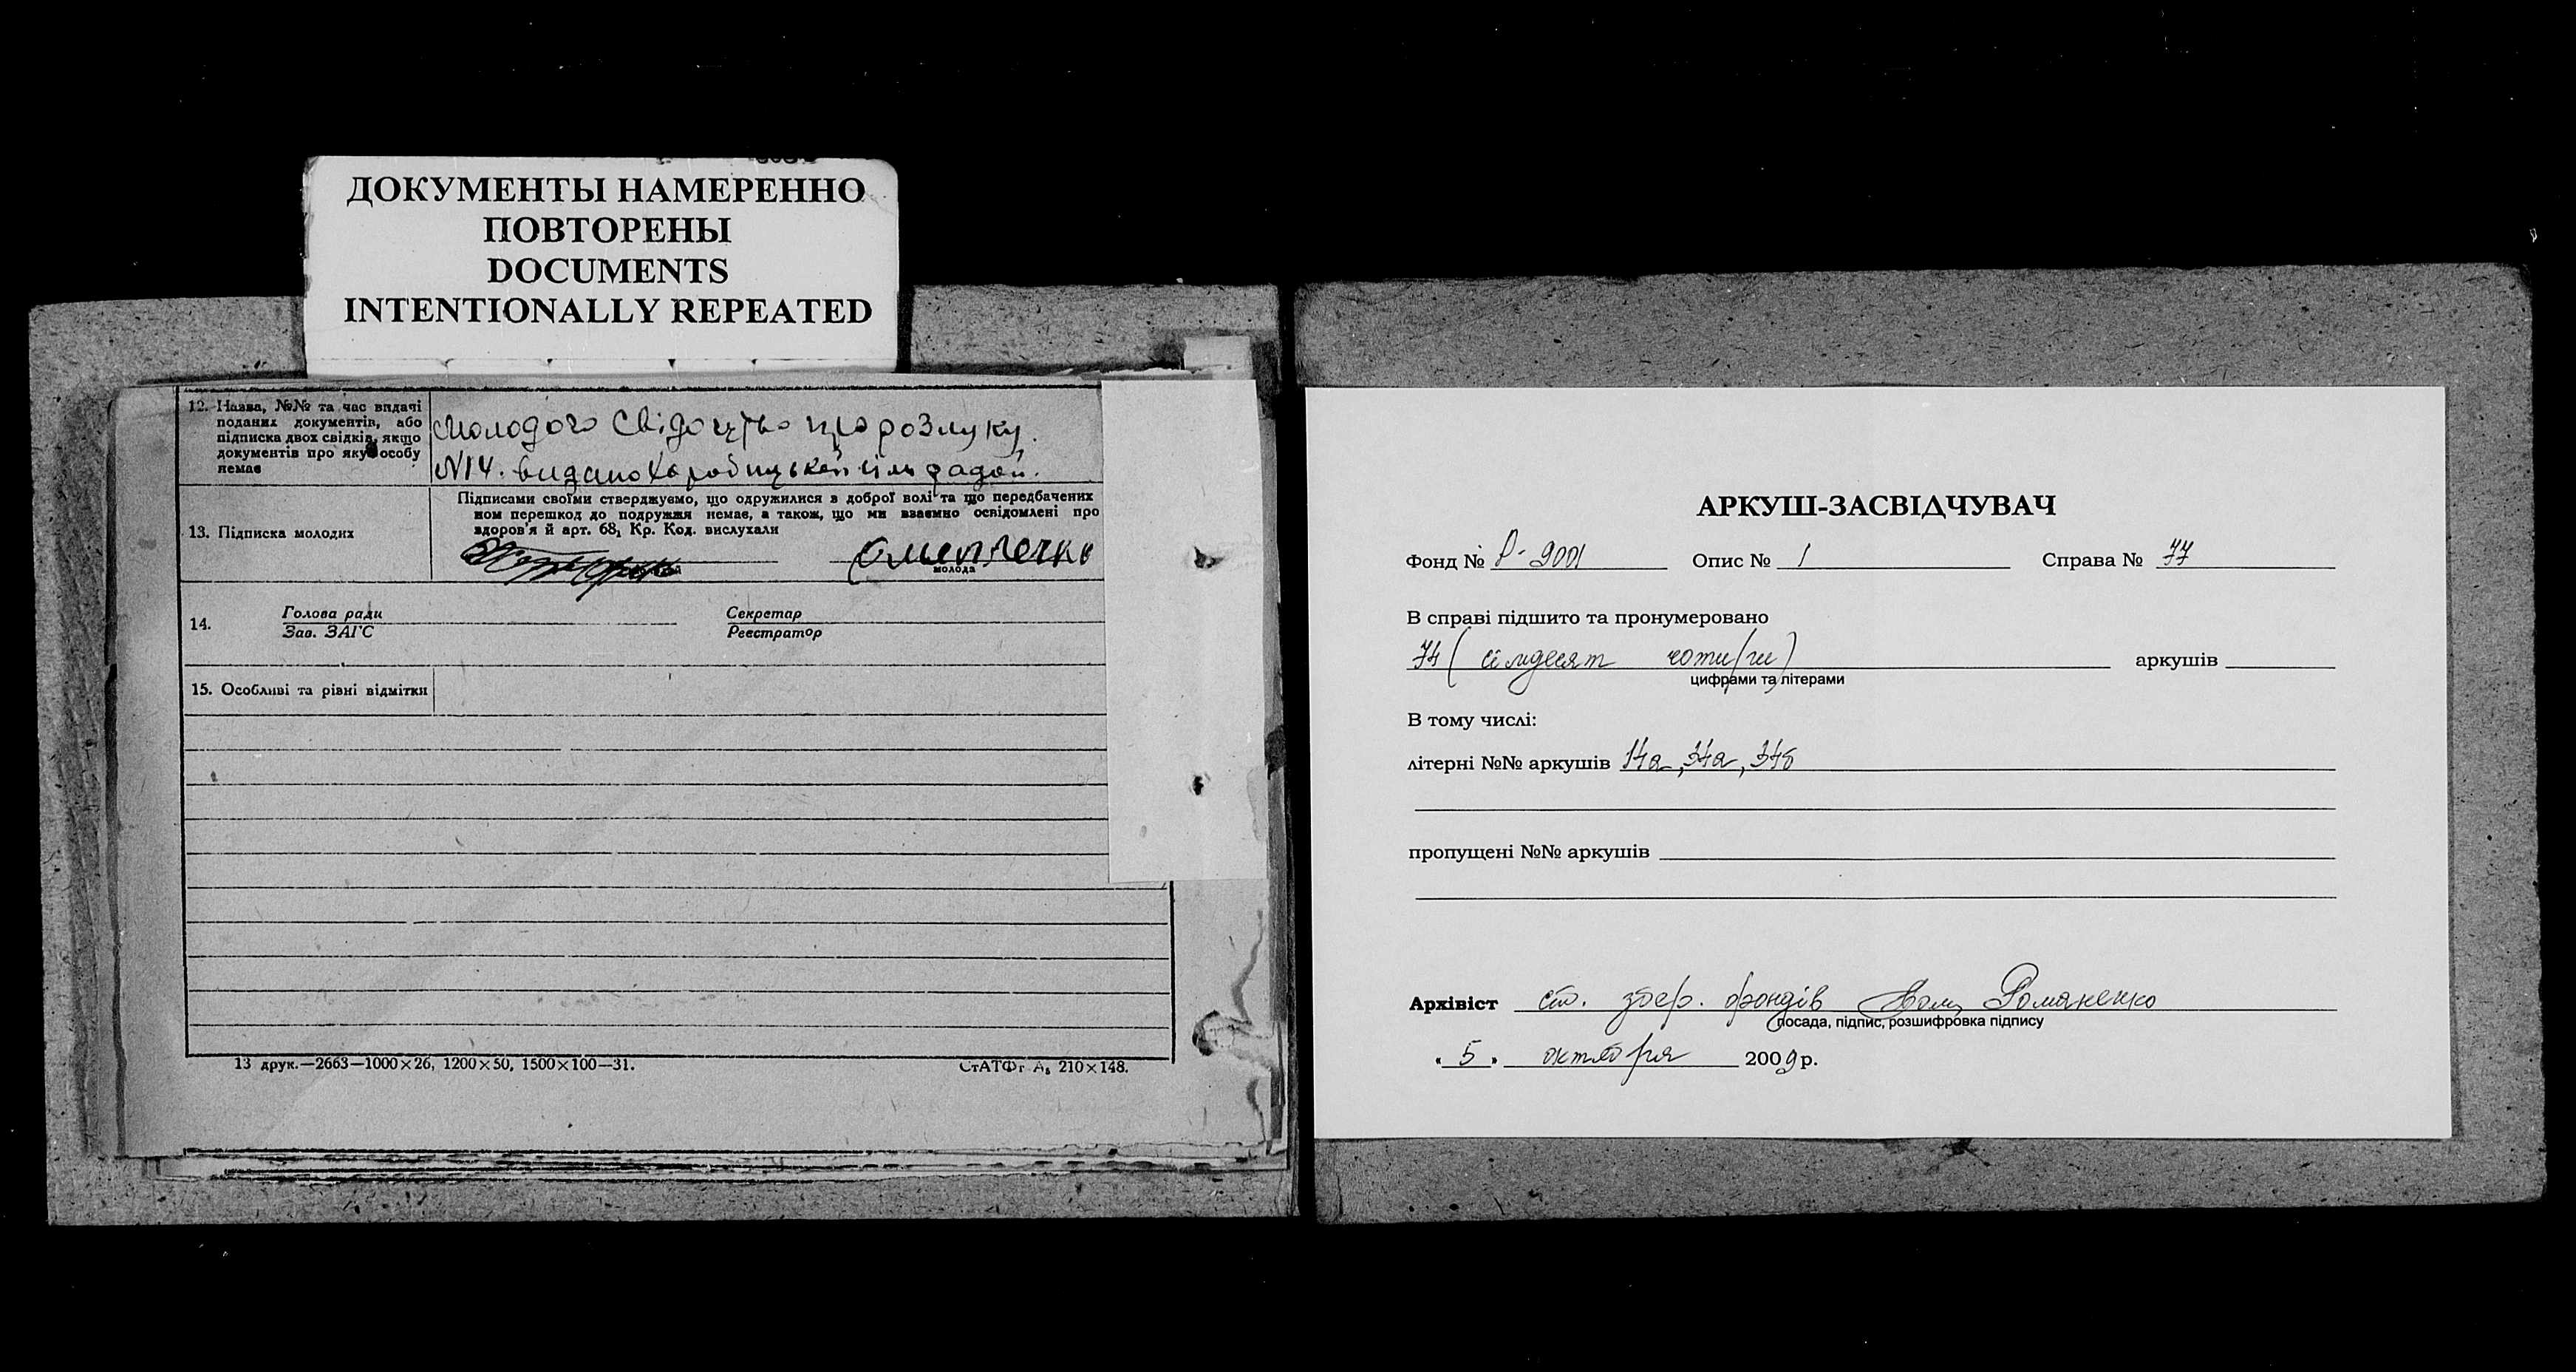 ДОКУМЕНТЫ НАМЕРЕННО
ПОВТОРЕНЫ
DOCUMENTS
INTENTIONALLY REPEATED
12. Назва, №№ та час видачі
поданих документів, або
підписка двох свідків, якщо
документів про яку особу
немає
молодого свідоцтво про розлуку.
N14. видано сільрадой.
13. Підписка молодих
Підписами своїми стверджуємо, що одружилися в доброї волі та що передбачених
ном перешкод до подружжя немає, а також, що ми взаємно освідомлені про
здоров'я й арт. 68, Кр. Код. вислухали
молода
14.
Голова ради
Зав. ЗАГС
Секретар
Реєстратор
15. Особливі та рівні відмітки
13 друк.—2663—1000×26, 1200×50, 1500×100—31.
СтАТФг А₅ 210×148.
АРКУШ-ЗАСВІДЧУВАЧ
Фонд № Р-9001 Опис № 1 Справа № 77
В справі підшито та пронумеровано
74 (сімдесят чотири) аркушів
цифрами та літерами
В тому числі:
літерні №№ аркушів 14а, 34а, 34б
пропущені №№ аркушів
Архівіст ст. збер. фондів Романенко
посада, підпис, розшифровка підпису
« 5 » октября 2009 р.